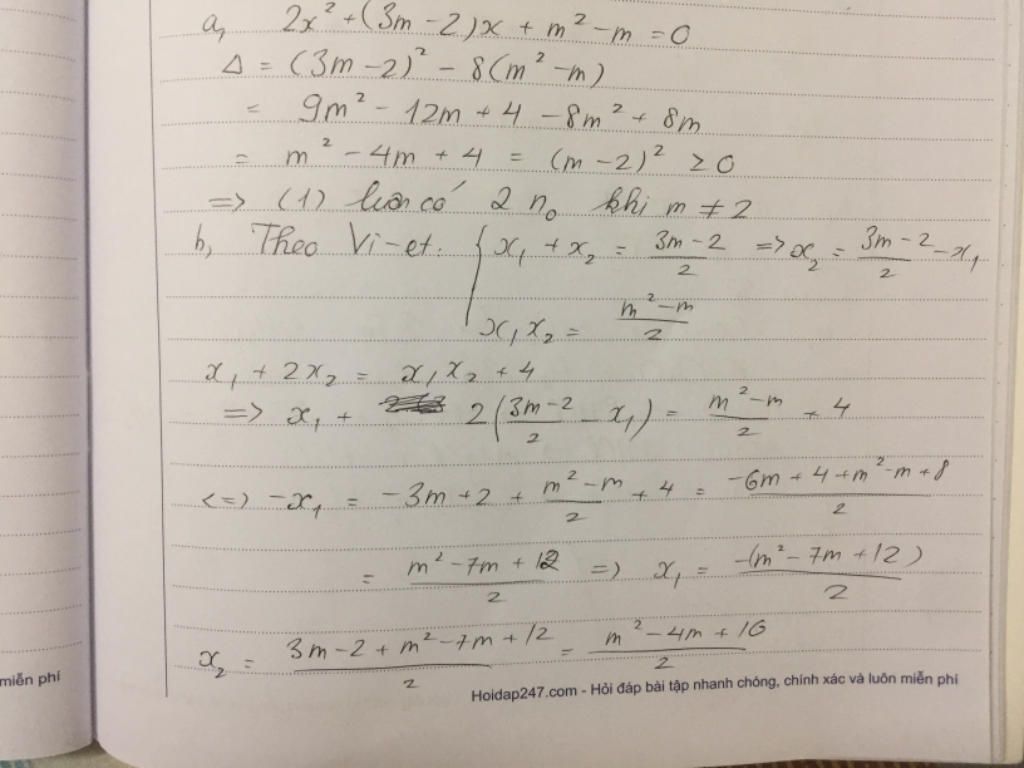 a, 2x² + (3m - 2)x + m² - m = 0
Δ = (3m - 2)² - 8(m² - m)
= 9m² - 12m + 4 - 8m² + 8m
= m² - 4m + 4 = (m - 2)² ≥ 0
=> (1) luôn có 2 n₀ khi m ≠ 2
b, Theo Vi-et: { x₁ + x₂ = (3m - 2)/2 => x₂ = (3m - 2)/2 - x₁
x₁x₂ = (m² - m)/2
x₁ + 2x₂ = x₁x₂ + 4
=> x₁ + 2((3m - 2)/2 - x₁) = (m² - m)/2 + 4
<=> -x₁ = -3m + 2 + (m² - m)/2 + 4 = (-6m + 4 + m² - m + 8)/2
= (m² - 7m + 12)/2 => x₁ = -(m² - 7m + 12)/2
x₂ = (3m - 2 + m² - 7m + 12)/2 = (m² - 4m + 10)/2
miễn phí
Hoidap247.com - Hỏi đáp bài tập nhanh chóng, chính xác và luôn miễn phí